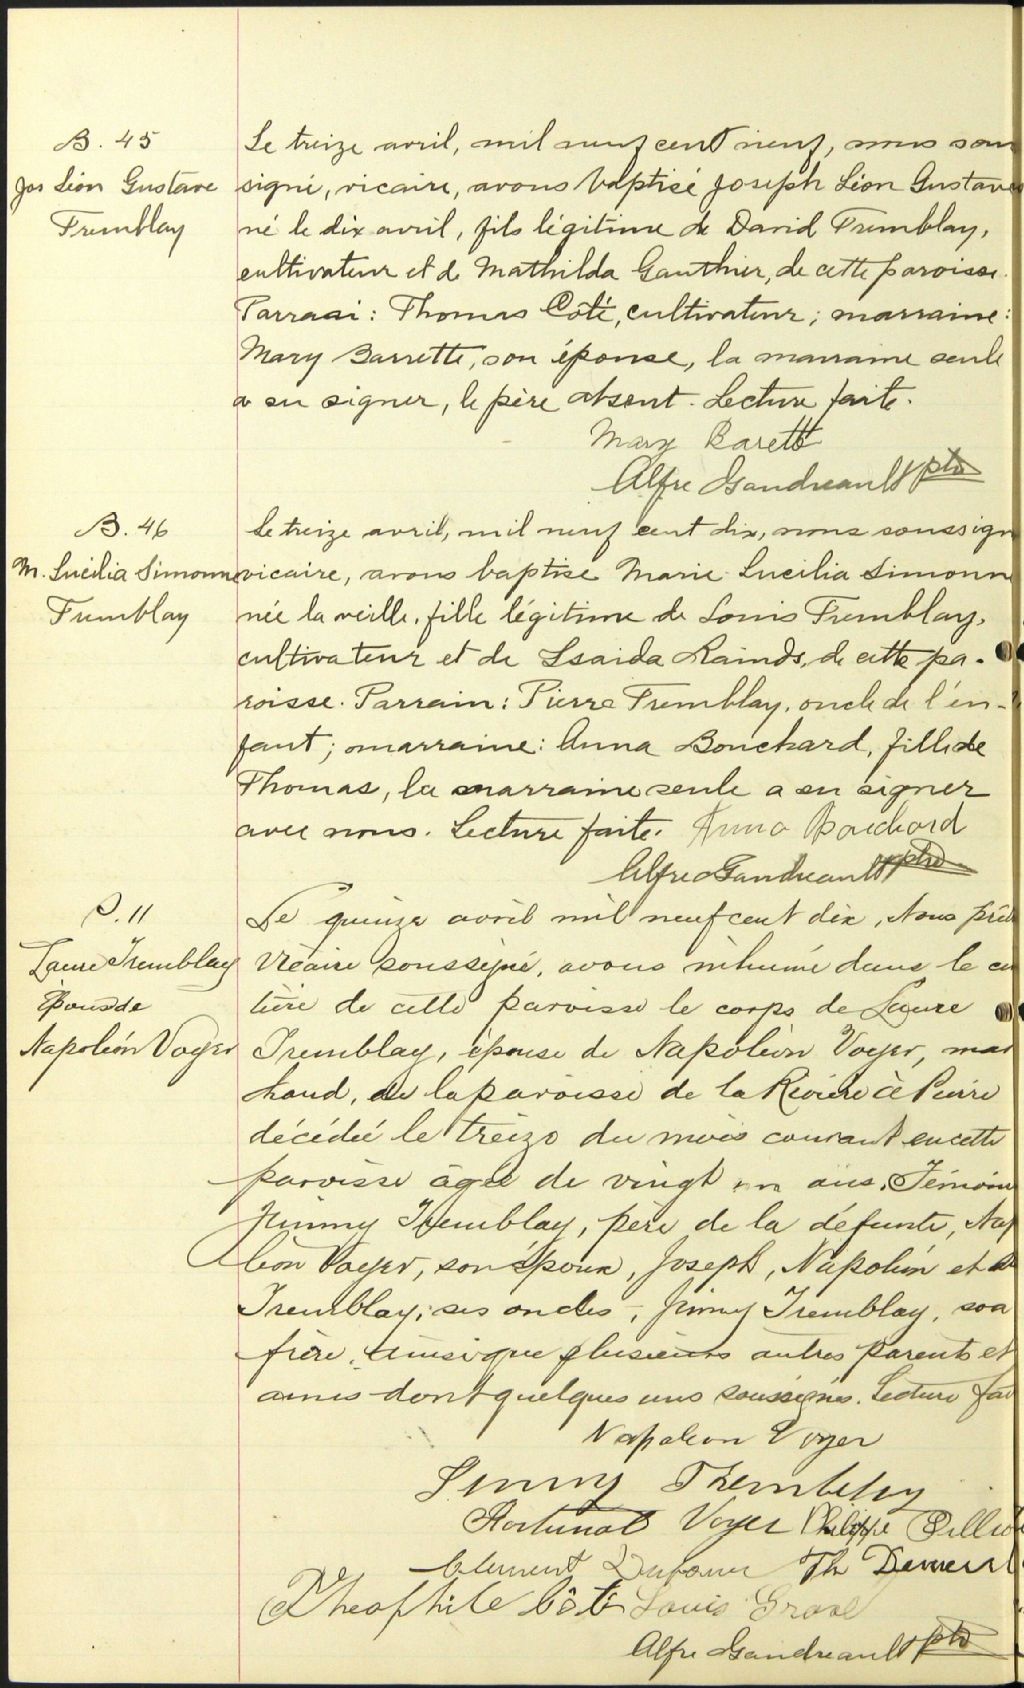 B. 45
Jos Léon Gustave
Tremblay
Le treize avril, mil neuf cent neuf, nous sous
signé, vicaire, avons baptisé Joseph Léon Gustave
né le dix avril, fils légitime de David Tremblay,
cultivateur et de Mathilda Gauthier, de cette paroisse.
Parrain : Thomas Côté, cultivateur ; marraine :
Mary Barrette, son épouse, la marraine seule
a su signer, le père absent. Lecture faite.
Mary Barett
Alfre Gaudreault ptre
B. 46
M. Lucilia Simonne
Tremblay
Le treize avril, mil neuf cent dix, nous soussign
vicaire, avons baptisé Marie Lucilia Simonn
née la veille, fille légitime de Louis Tremblay,
cultivateur et de de cette pa-
roisse. Parrain : Pierre Tremblay, oncle de l'en-
fant ; marraine : Anna Bouchard, fille de
Thomas, la marraine seule a su signer
avec nous. Lecture faite. Anna Bouchard
Alfre Gaudreault ptre
S. 11
Laure Tremblay
épouse de
Napoléon Voyer
Le quinze avril mil neuf cent dix, Nous prêt
Vicaire soussigné, avons inhumé dans le ci
tière de cette paroisse le corps de Laure
Tremblay, épouse de Napoléon Voyer, mar
chand, de la paroisse de la Rivière à Pierre
décédée le treize du mois courant en cette
paroisse âgée de vingt un ans. Témoins
Jimmy Tremblay, père de la défunte, Nap
léon Voyer, son époux, Joseph, Napoléon et
Tremblay, ses oncles, Jimmy Tremblay, son
frère, ainsi que plusieurs autres parents et
amis dont quelques uns soussignés. Lecture fai
Napoleon Voyer
Jimmy Trembley
Fortunat Voyer Philippe
Clement Dufour Th
Théophile Côté Louis
Alfre Gaudreault ptre